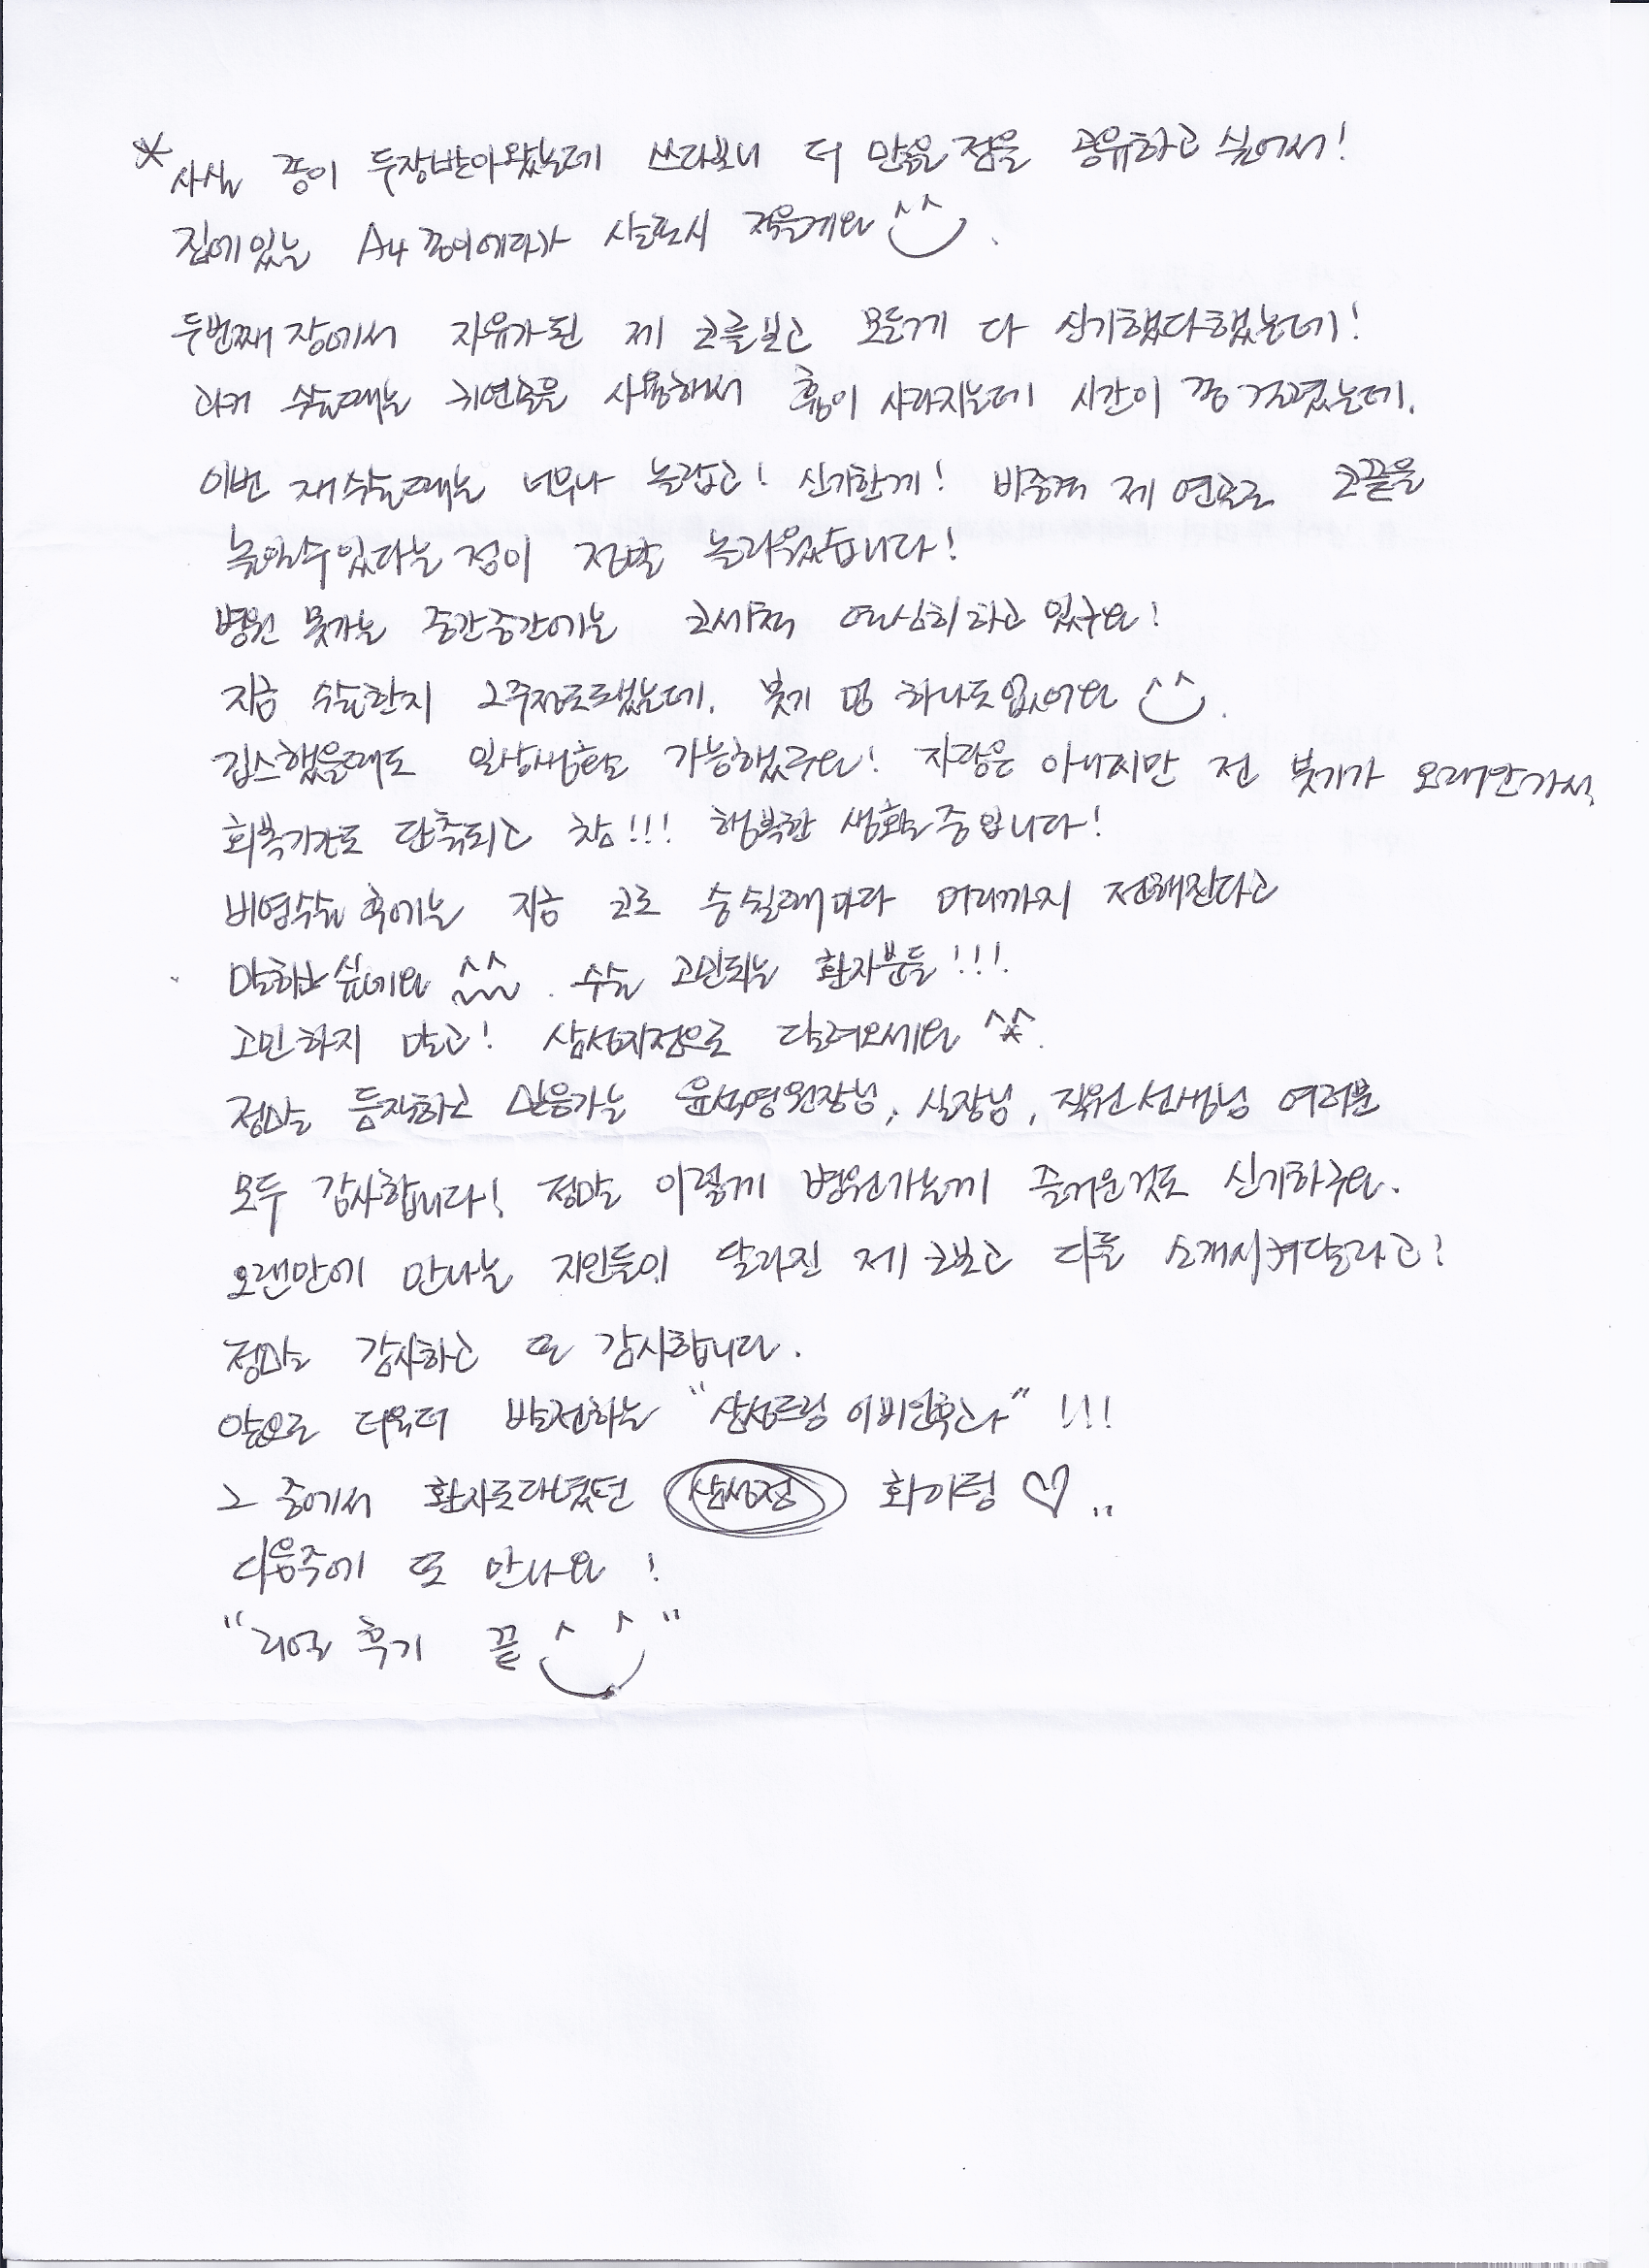 * 사실 종이 두장받아왔는데 쓰다보니 더 많은점을 공유하고 싶어서!
집에있는 A4 종이에다가 살포시 적을게요 ^^
두번째 장에서 자유가된 제 코를보고 모든게 다 신기했다했는데!
과거 수술때는 귀연골을 사용해서 흉이 사라지는데 시간이 쫌 걸렸는데.
이번 재수술때는 너무나 놀랍고! 신기한게! 비중격 제 연골로 코끝을
높일수있다는점이 정말 놀라웠습니다!
병원 못가는 중간중간에는 코세척 열심히하고 있구요!
지금 수술한지 2주정도됐는데. 붓기 멍 하나도없어요 ^^.
깁스했을때도 일상생활도 가능했구요! 자랑은 아니지만 전 붓기가 오래안가서,
회복기간도 단축되고 참!!! 행복한 생활중입니다!
비염수술 후에는 지금 코로 숨쉴때마다 머리까지 전해진다고
말하고싶네요 ^^. 수술 고민되는 환자분들!!!.
고민하지 말고! 삼성지점으로 달려오세요 ^^.
정말 듬직하고 믿음가는 윤석영원장님, 실장님, 직원선생님 여러분
모두 감사합니다! 정말 이렇게 병원가는게 즐거운것도 신기하구요.
오랜만에 만나는 지인들이 달라진 제 코보고 다들 소개시켜달라고!
정말 감사하고 또 감사합니다.
앞으로 더욱더 발전하는 "삼성드림 이비인후과" !!!
그 중에서 환자로다녔던 삼성점 화이팅 ♡ ..
다음주에 또 만나요 !
"리얼 후기 끝 ^ ^"